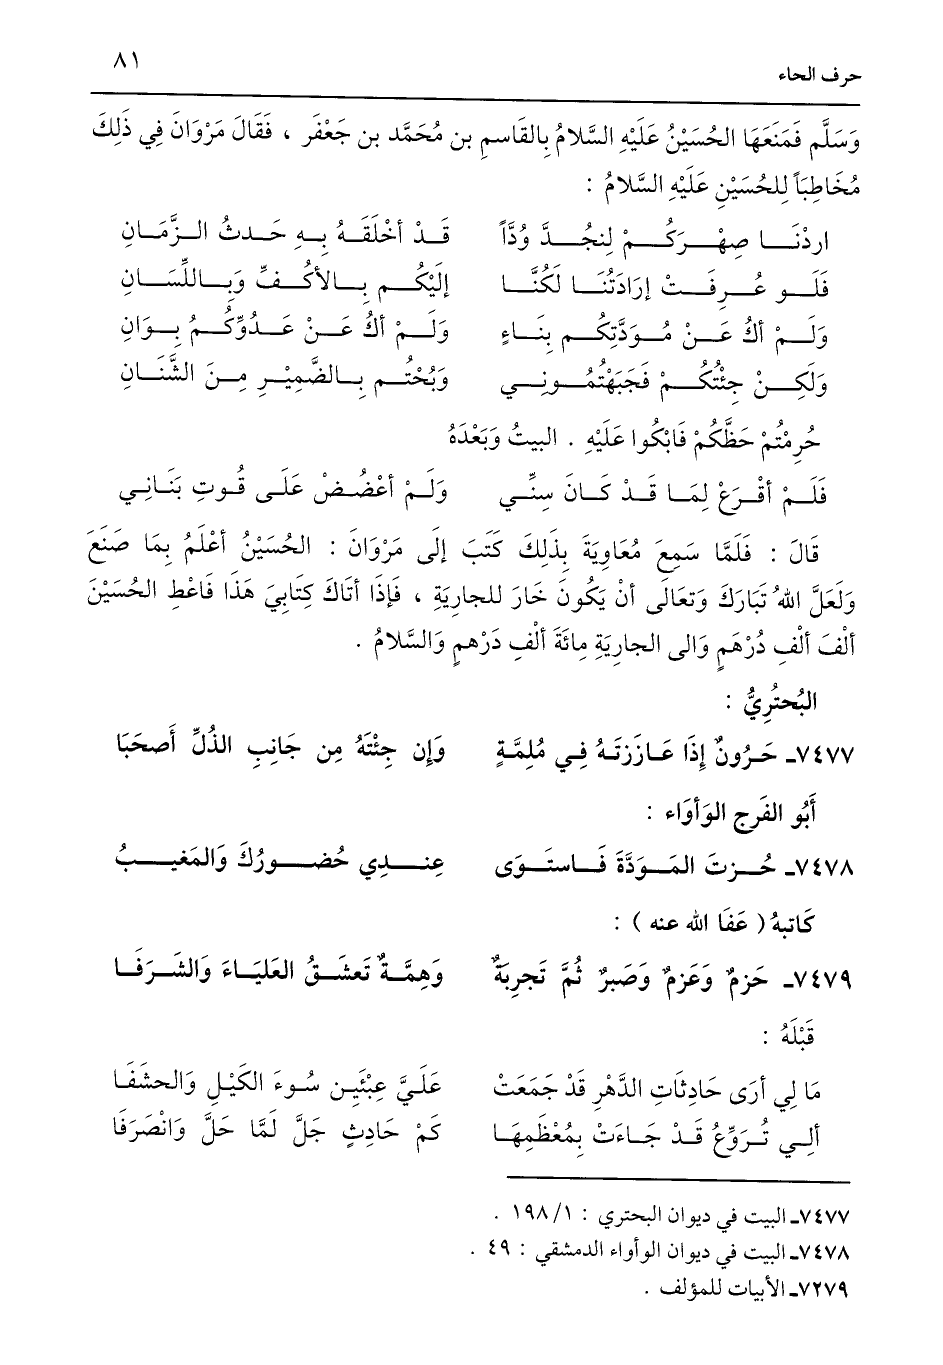 حرف الحاء ٨١
وَسَلَّم فَمَنَعَهَا الحُسَيْنُ عَلَيْهِ السَّلامُ بِالقَاسِمِ بن مُحَمَّد بن جَعْفَر ، فَقَالَ مَرْوَانَ فِي ذَلِكَ
مُخَاطِبَاً لِلحُسَيْنِ عَلَيْهِ السَّلامُ :
اردْنَا صِهْرَكُمْ لِنجُدَّ وُدَّاً قَدْ أخْلَقَهُ بِهِ حَدثُ الزَّمَانِ
فَلَو عُرِفَتْ إرَادَتُنَا لَكُنَّا إلَيْكُم بِالأكُفِّ وَبَاللِّسَانِ
وَلَمْ أكُ عَنْ مُوَدَّتِكُم بِنَاءٍ وَلَمْ أكُ عَنْ عَدُوِّكُمُ بِوَانِ
وَلَكِنْ جِئْتُكُمْ فَجَبَهْتُمُونِي وَبُحْتُم بِالضَّمِيْرِ مِنَ الشَّنَانِ
حُرِمْتُمْ حَظَّكُمْ فَابْكُوا عَلَيْهِ . البيتُ وَبَعْدَهُ
فَلَمْ أقْرَعْ لِمَا قَدْ كَانَ سِنِّي وَلَمْ أعْضُضْ عَلَى قُوتِ بَنَانِي
قَالَ : فَلَمَّا سَمِعَ مُعَاوِيَةَ بِذَلِكَ كَتَبَ إلَى مَرْوَانَ : الحُسَيْنُ أعْلَمُ بِمَا صَنَعَ
وَلَعَلَّ اللهُ تَبَارَكَ وَتَعَالَى أنْ يَكُونَ خَارَ للجارِيَةِ ، فَإذَا أتَاكَ كِتَابِيَ هَذَا فَاعْطِ الحُسَيْنَ
ألْفَ ألْفِ دُرْهَمٍ وَالى الجارِيَةِ مِائَةَ ألْفِ دَرْهمٍ وَالسَّلامُ .
البُحتُرِيُّ :
٧٤٧٧ـ حَرُونٌ إذَا عَازَزتَهُ فِي مُلِمَّةٍ وَإن جِئْتَهُ مِن جَانِبِ الذُلِّ أَصحَبَا
أَبُو الفَرجِ الوَأوَاء :
٧٤٧٨ـ حُزتَ المَوَدَّةَ فَاستَوَى عِندِي حُضورُكَ وَالمَغيبُ
كَاتبهُ ( عَفَا الله عنه ) :
٧٤٧٩ـ حَزمٌ وَعَزمٌ وَصَبرٌ ثُمَّ تَجرِبَةٌ وَهِمَّةٌ تَعشَقُ العَليَاءَ وَالشَرَفَا
قَبْلَهُ :
مَا لِي أرَى حَادِثَاتِ الدَّهْرِ قَدْ جَمَعَتْ عَلَيَّ عِبْئَين سُوءَ الكَيْلِ وَالحشَفَا
ألِي تُرَوِّعُ قَدْ جَاءَتْ بِمُعْظَمِهَا كَمْ حَادِثٍ جَلَّ لَمَّا حَلَّ وَانْصَرَفَا
٧٤٧٧ـ البيت في ديوان البحتري : ١/ ١٩٨ .
٧٤٧٨ـ البيت في ديوان الوأواء الدمشقي : ٤٩ .
٧٢٧٩ـ الأبيات للمؤلف .